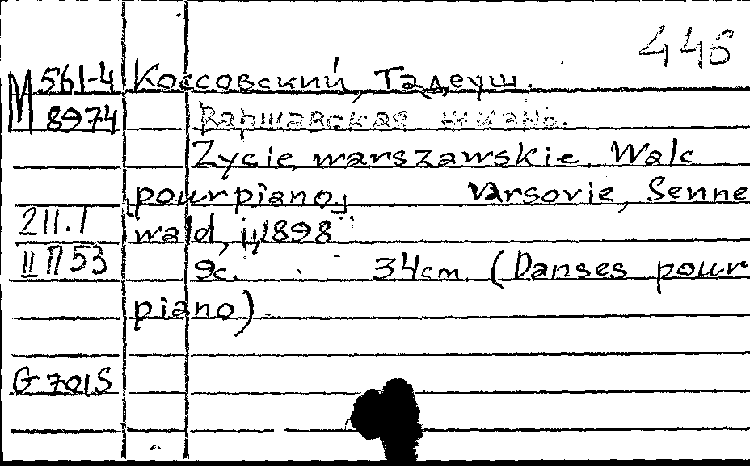 446
М 561-4 Коссовский, Тадеуш.
8974 Варшавская жизнь.
Zycie warszawskie. Walc
[pour piano] Varsovie, Senne
211.1 wald, 1898
II П 53 9с. 34cm. (Danses pour
piano).
G 701S